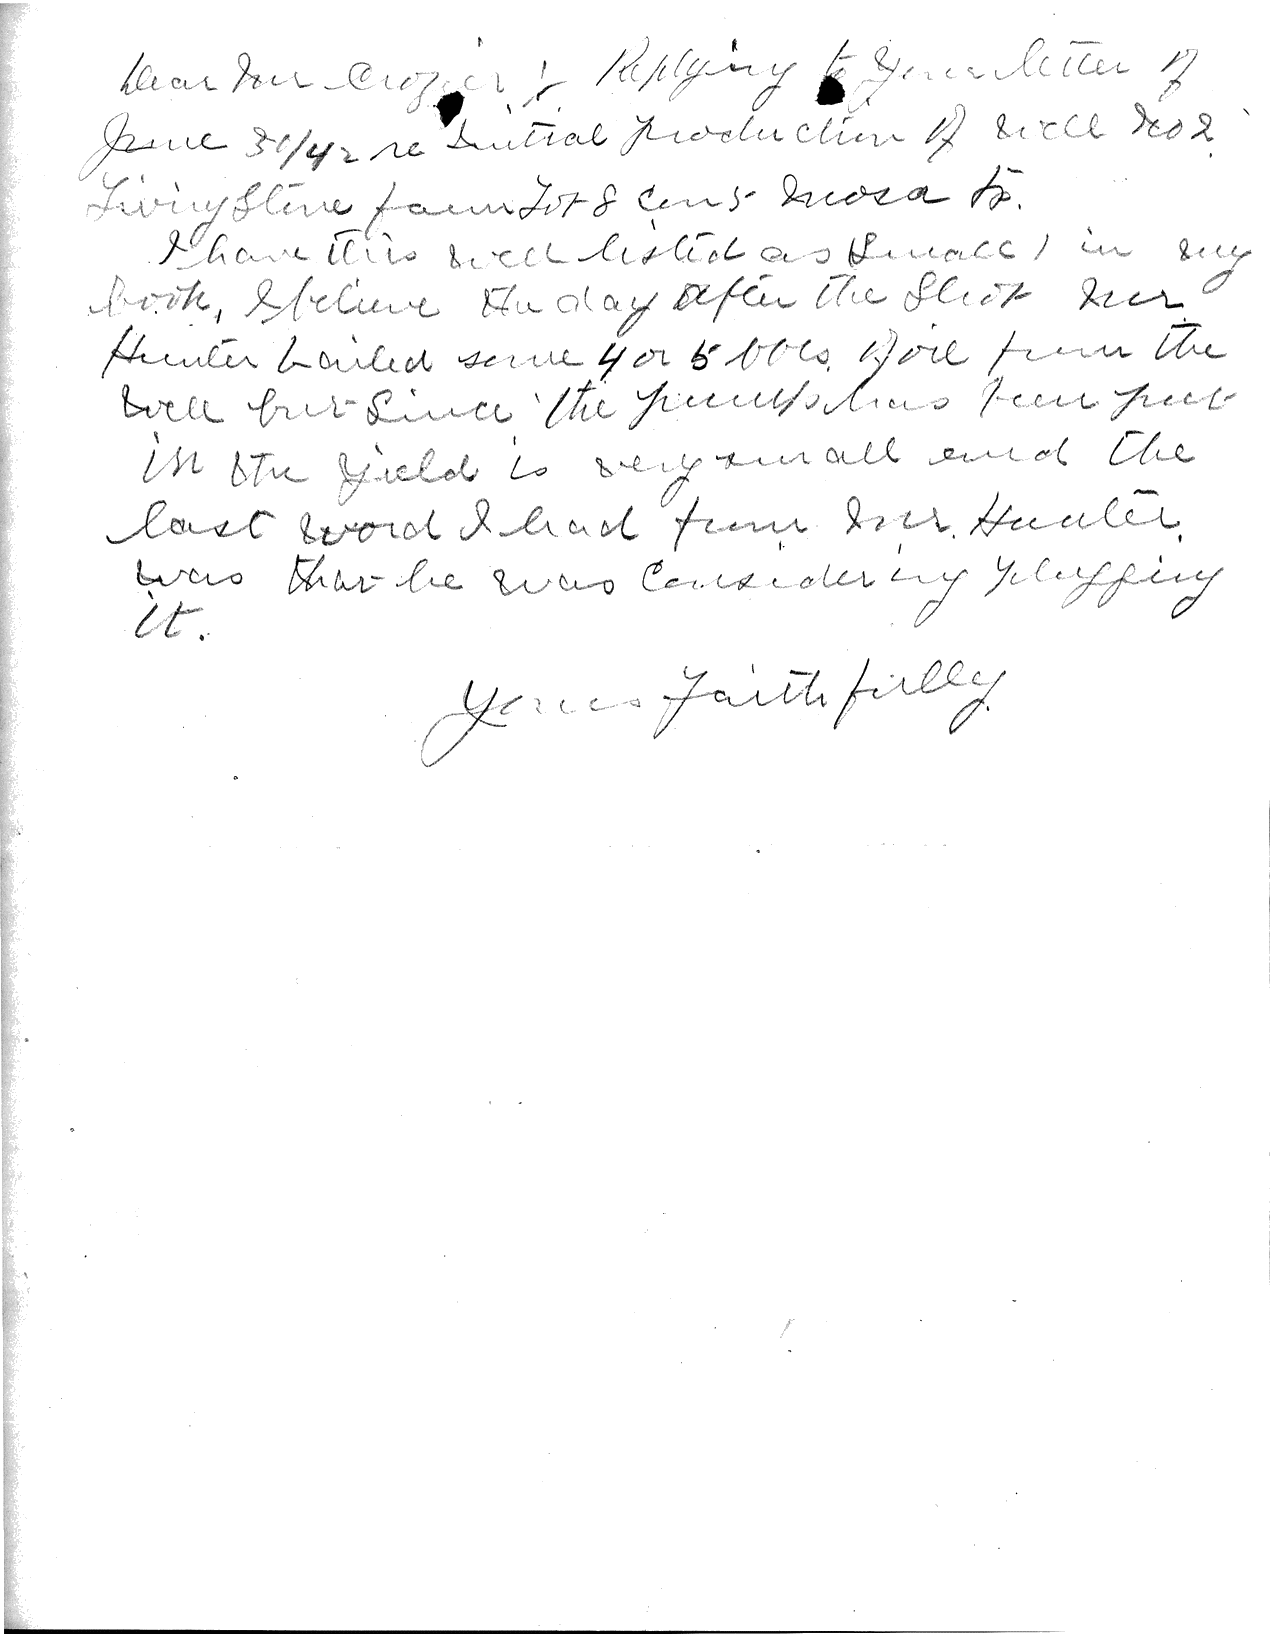 Dear Mr Crozier :- Replying to your letter of
June 30/42 re Initial production of well No 2
Livingstone farm Lot 8 Con 5 Mosa Tp.
I have this well listed as (Small) in my
book, I believe the day after the Shot Mr.
Hunter bailed some 4 or 5 bbls. of oil from the
well but Since the pump has been put
in the yield is very small and the
last word I had from Mr. Hunter
was that he was Considering plugging
it.
Yours Faithfully